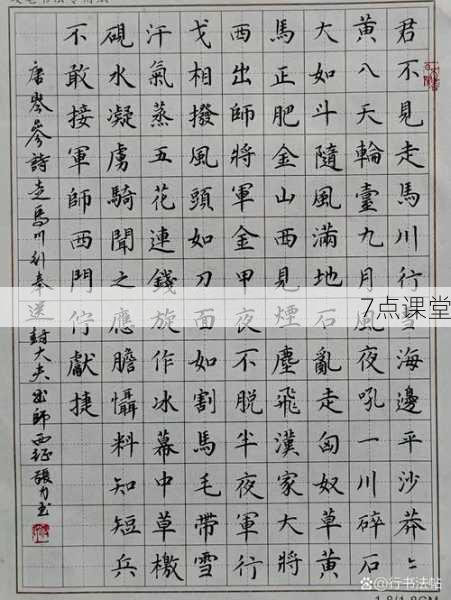 君不見走馬川行雪海邊平沙莽々
黄入天輪臺九月風夜吼一川碎石
大如斗隨風滿地石亂走匈奴草黄
馬正肥金山西見煙塵飛漢家大將
西出師將軍金甲夜不脱半夜軍行
戈相撥風頭如刀面如割馬毛帶雪
汗氣蒸五花連錢旋作冰幕中草檄
硯水凝虜騎聞之應膽懾料知短兵
不敢接軍師西門佇獻捷
唐岑參詩走馬川行奉送封大夫出師西征張力
7点课堂
@行书法帖
1.8/1.8CM